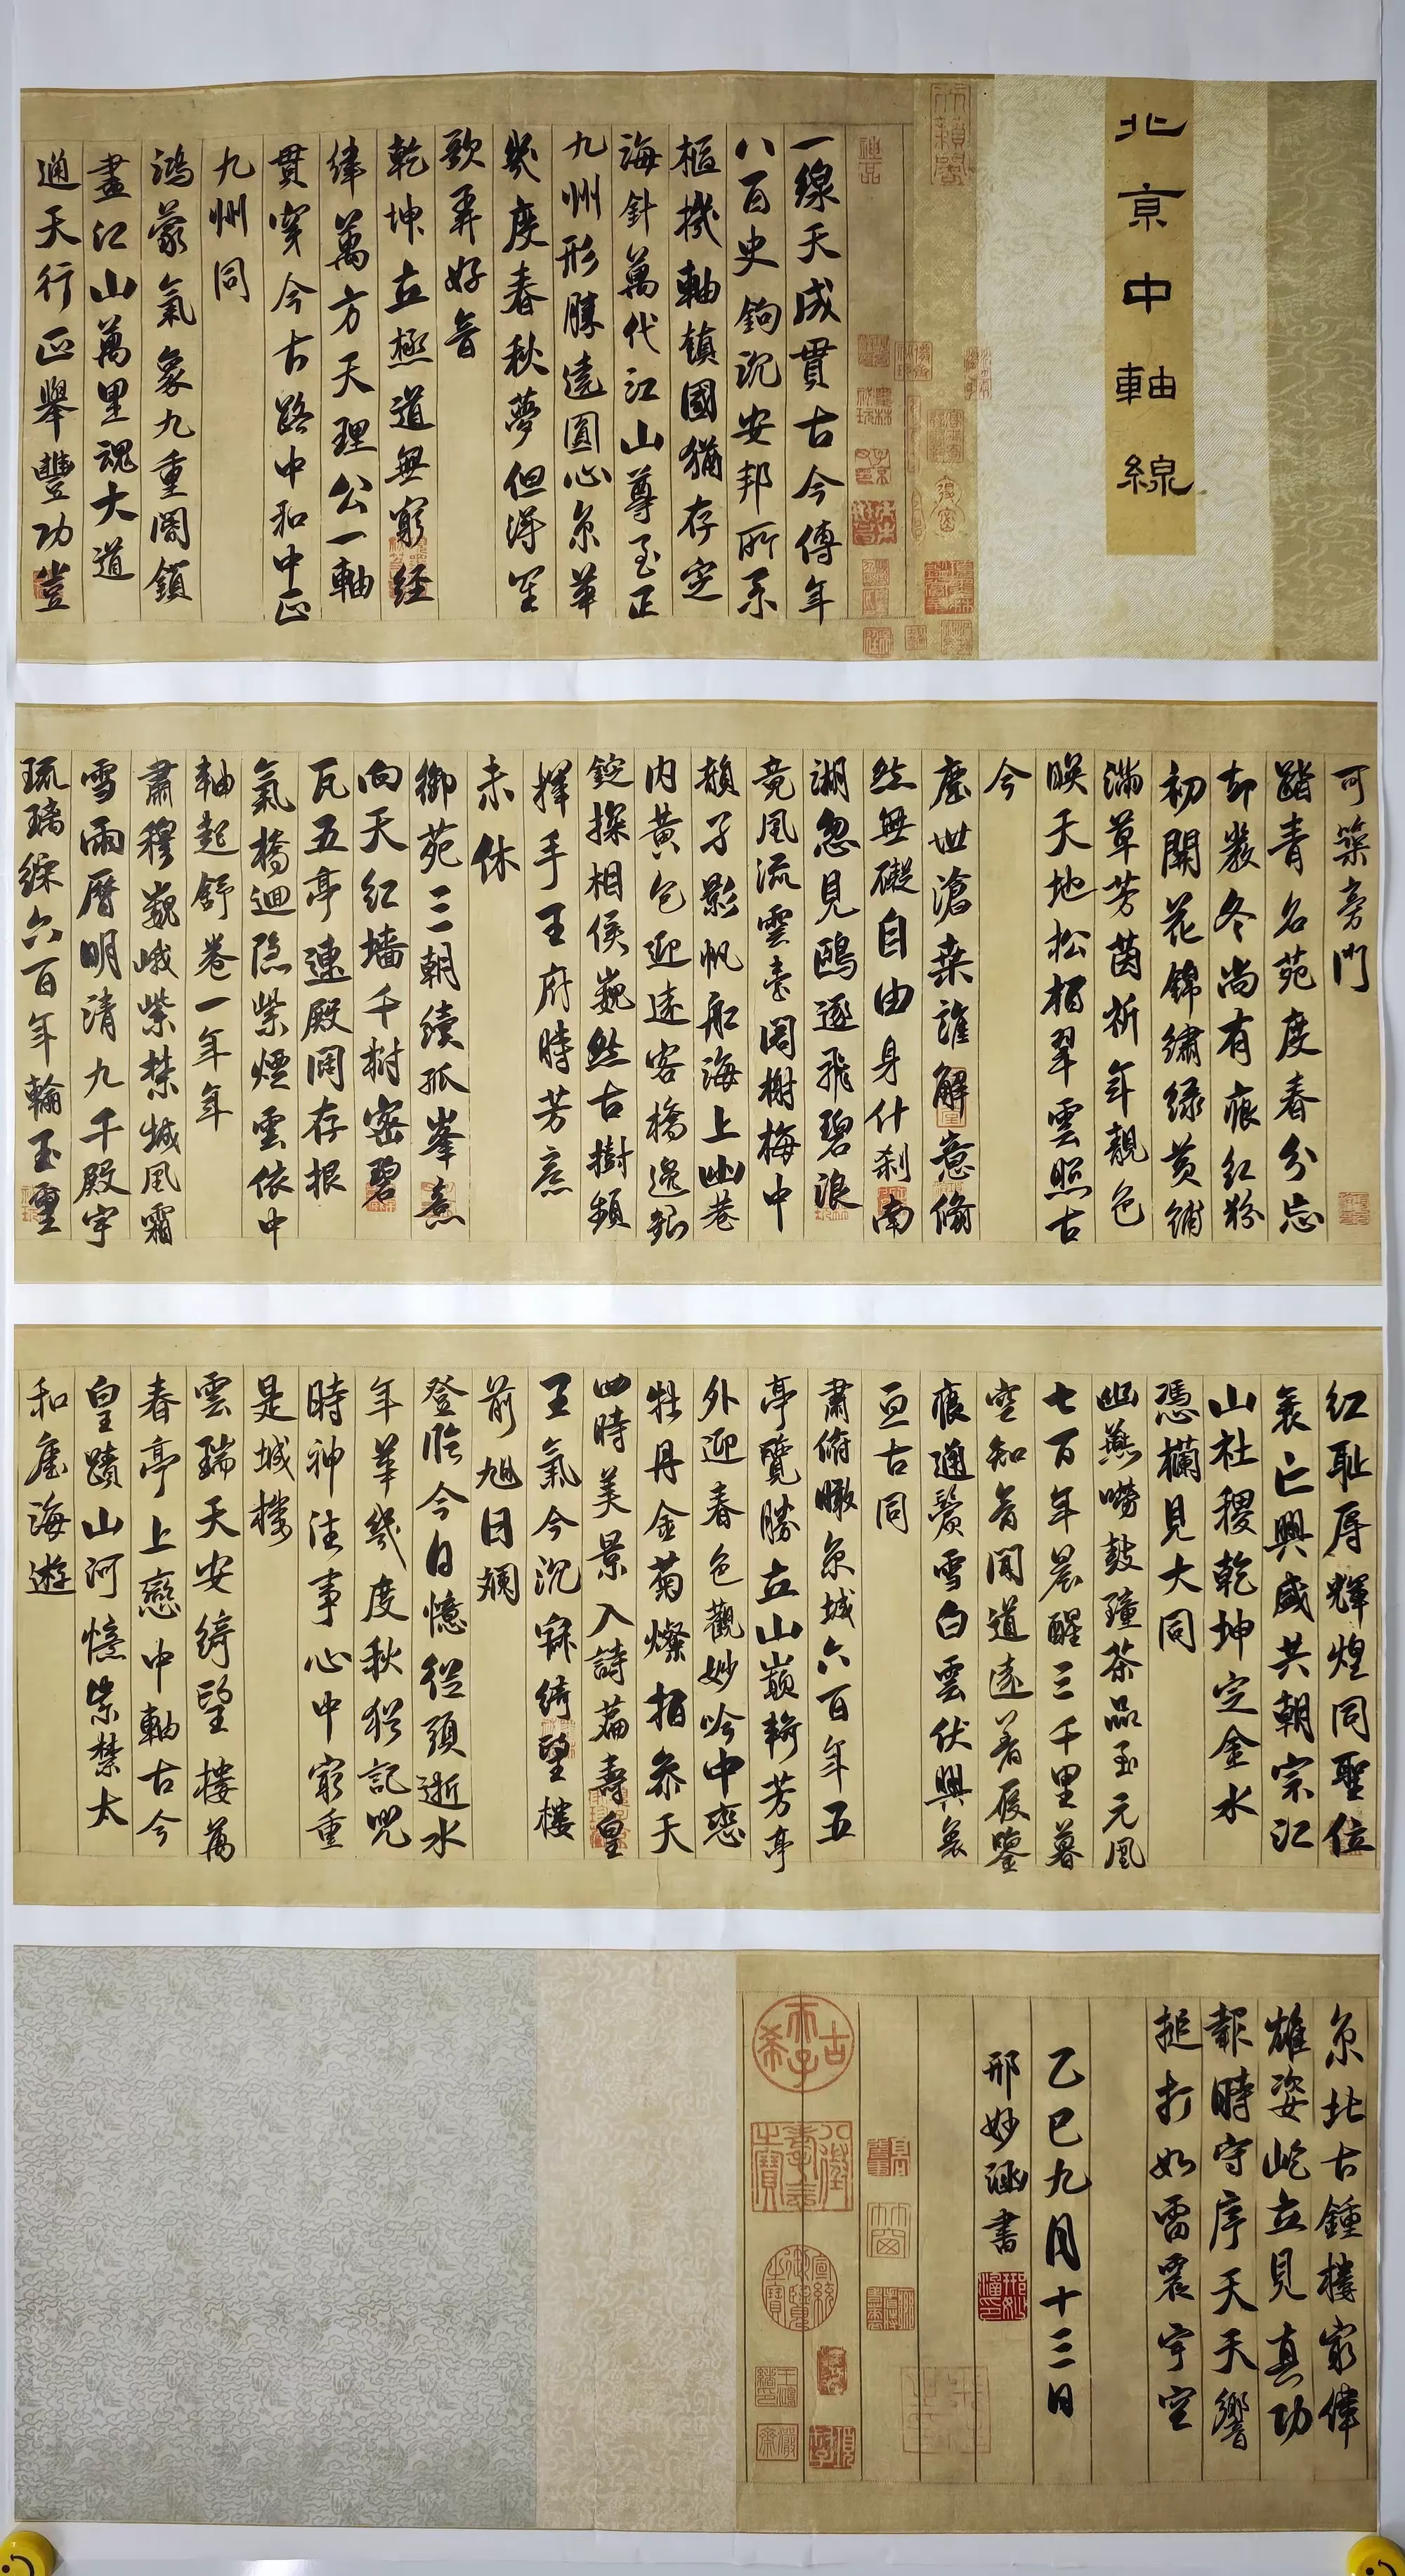 北京中軸線
一線天成貫古今傳年
八百史鉤沉安邦所系
樞機軸鎮國猶存定
海針萬代江山尊至正
九州形勝遶圓心京華
幾度春秋夢但得笙
歌弄好音
乾坤立極道無窮經
緯萬方天理公一軸
貫穿今古路中和中正
九州同
鴻蒙氣象九重閣鎖
盡江山萬里魂大道
通天行正舉豐功豈
可築旁門
踏青名苑度春分忘
却嚴冬尚有痕紅粉
初開花錦繡綠黃鋪
滿草芳茵祈年靚色
映天地松柏翠雲照古
今
塵世滄桑誰解意翛
然無礙自由身什刹南
湖忽見鷗逐飛碧浪
竟風流雲臺閣榭梅中
韻子影帆船海上幽巷
内黃包迎遠客橋邊銀
錠探相侯巍然古樹頻
揮手王府時芳意
未休
御苑三朝續孤峯熹
向天紅墻千樹密碧
瓦五亭連殿閣存根
氣橋迴隐紫煙雲依中
軸起舒卷一年年
肅穆巍峨紫禁城風霜
雪雨曆明清九千殿宇
琉璃綵六百年輪玉璽
紅耻辱輝煌同聖位
衰亡興盛共朝宗江
山社稷乾坤定金水
憑欄見大同
幽燕嘹鼓鐘茶品玉元風
七百年晨醒三千里暮
空知音聞道遠着履鑒
痕通鬢雪白雲伏興衰
亙古同
肅俯瞰京城六百年五
亭覽勝立山巔輈芳亭
外迎春色觀妙吟中戀
牡丹金菊燦柏參天
四時美景入詩篇壽皇
王氣今沉寐綺望樓
前旭日斕
登臨今日憶從頭逝水
年華幾度秋猶記兒
時神注事心中窮重
是城樓
雲瑞天安綺望樓萬
春亭上戀中軸古今
皇蹟山河憶紫禁太
和崖海遊
京北古鍾樓最偉
雄姿屹立見真功
報時守序天天響
搥打如雷震宇空
乙巳九月十三日
邢妙涵書
古希天子
八徵耄念之寶
宣統御覽之寶